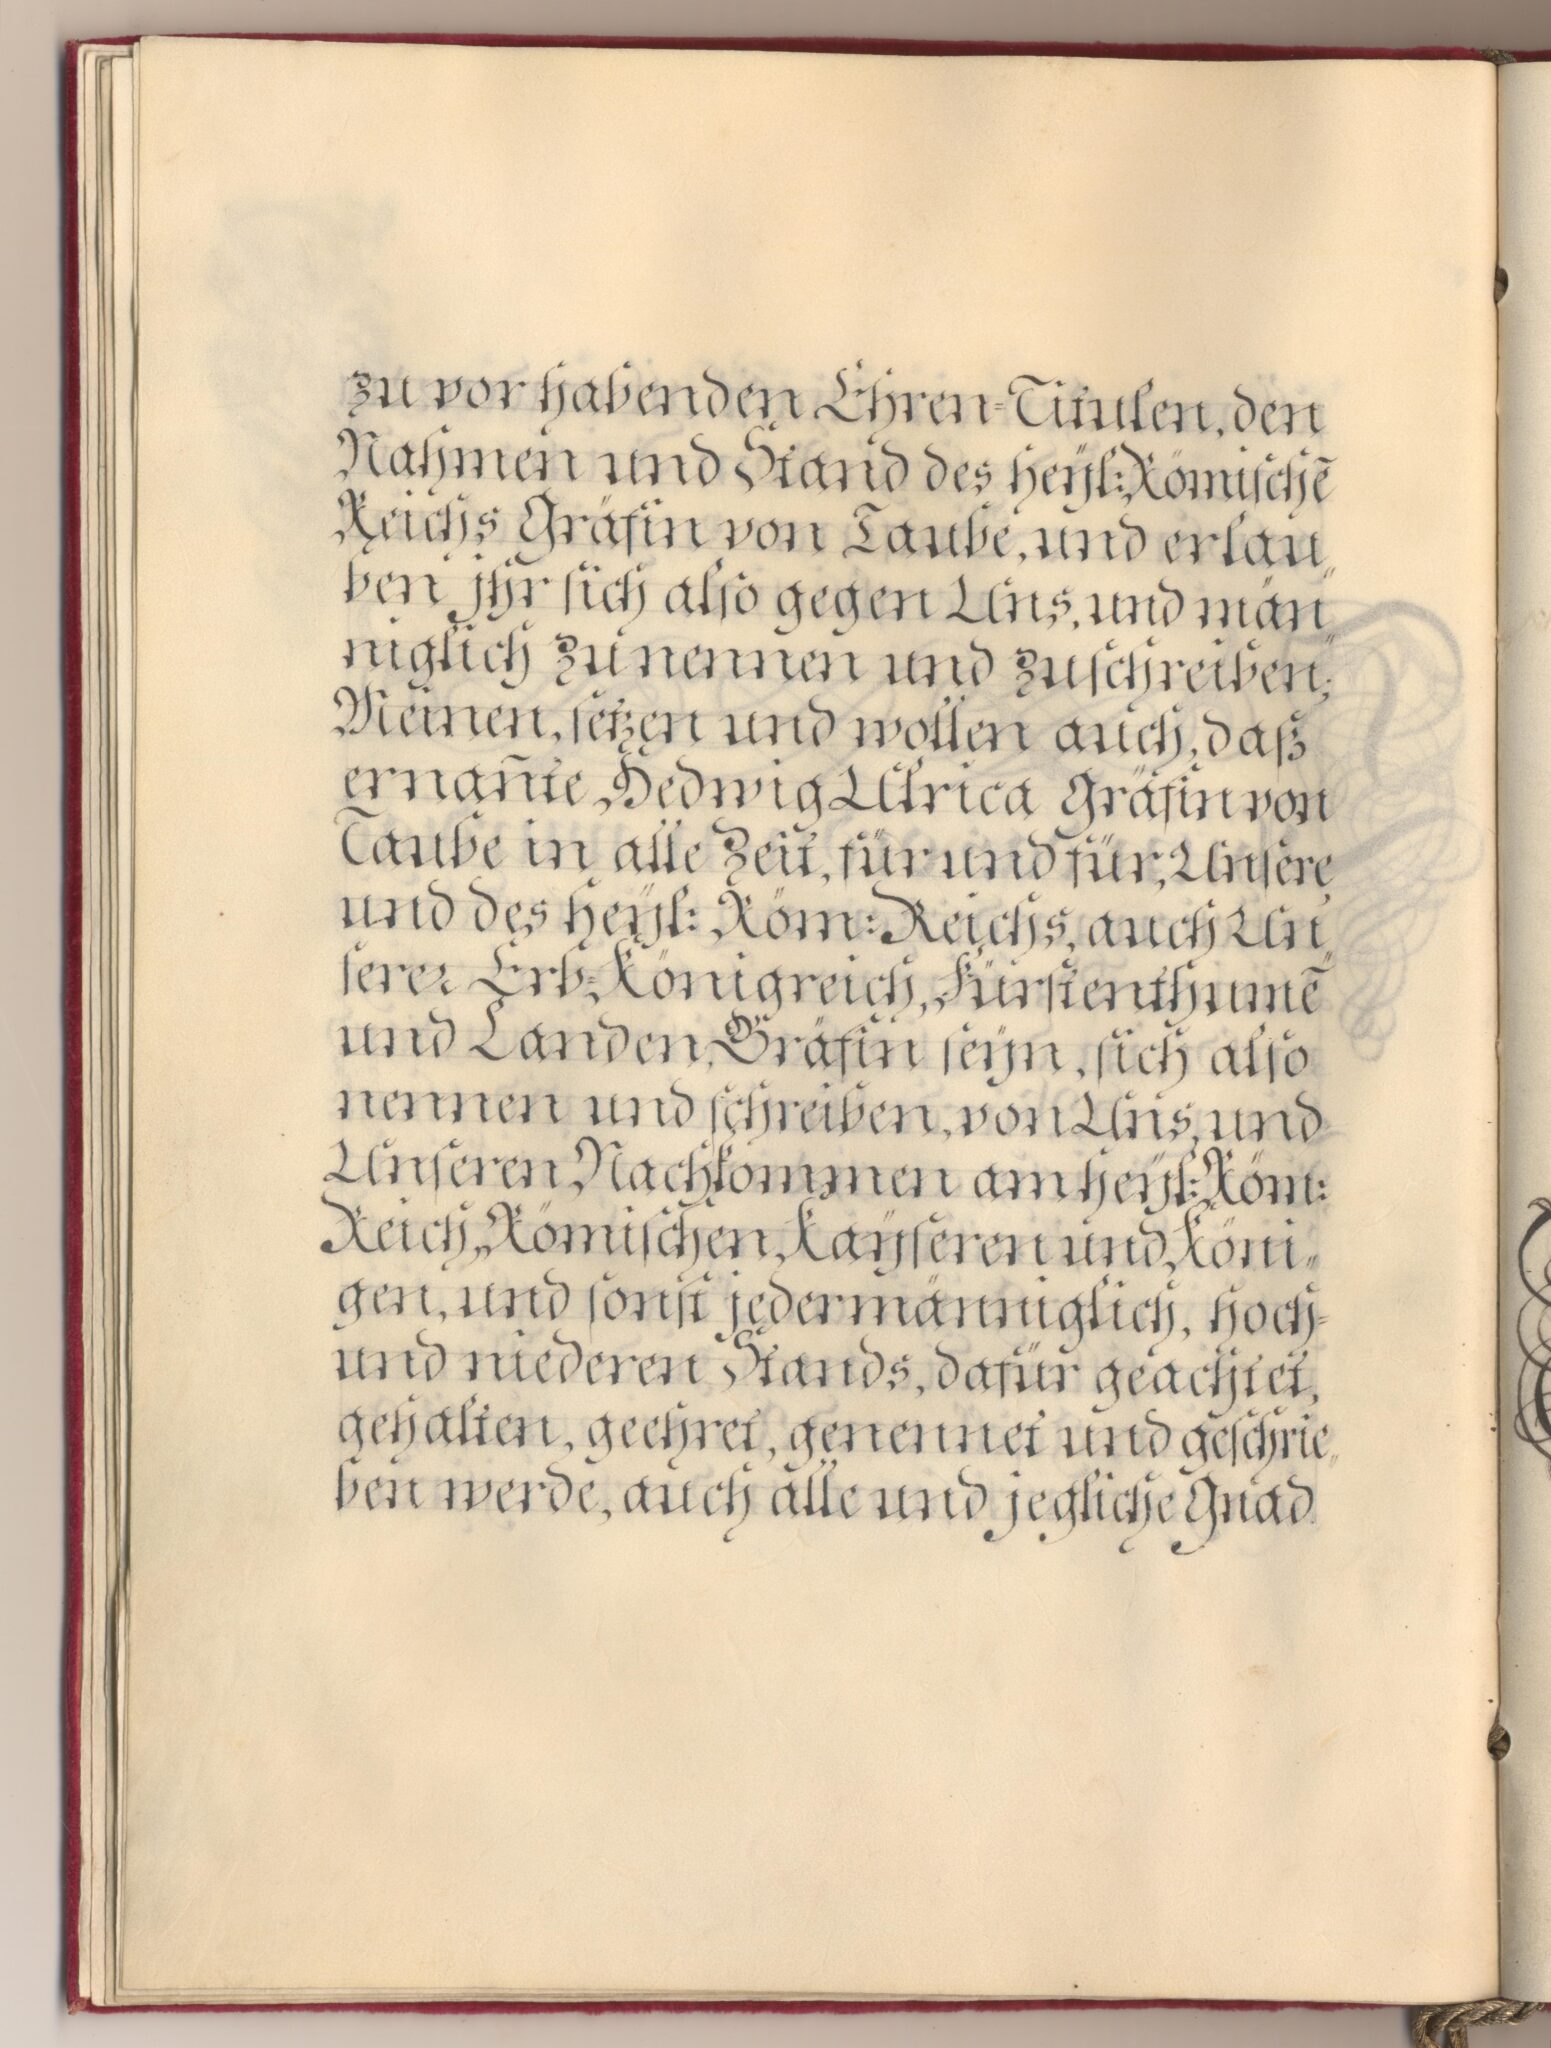 zu vor habenden Ehren=Titulen, den
Nahmen und Stand des heÿl: Römischē
Reichs Gräfin von Taube, und erlau„
ben jhr sich also gegen Uns, und män„
niglich zu nennen und zu schreiben;
Meinen, setzen und wollen auch, daß
ernan̄te Hedwig Ulrica Gräfin von
Taube in alle Zeit, für und für, Unsere
und des heÿl: Röm: Reichs, auch Un„
serer Erb=Königreich, Fürstenthumē
und Landen, Gräfin seÿn, sich also
nennen und schreiben, von Uns, und
Unseren Nachkommen am heÿl: Röm:
Reich, Römischen Kaÿseren und Köni„
gen, und sonst jedermänniglich, hoch=
und niederen Stands, dafür geachtet,
gehalten, geehret, genennet und geschrie„
ben werde, auch alle und jegliche Gnad